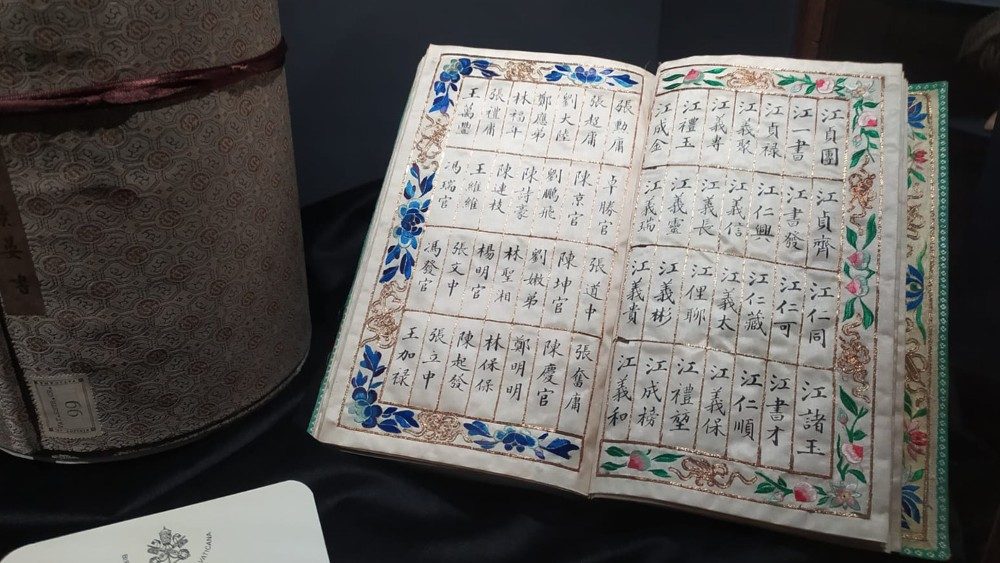 江貞團 江貞齊 江仁同 江諸玉
江一書 江書發 江仁可 江書才
江貞祿 江仁興 江仁藏 江仁順
江義聚 江義信 江義太 江義保
江義壽 江義長 江俚聊 江禮
江禮玉 江義靈 江義彬 江成榜
江成金 江義瑞 江義貴 江義和
張勳庸 卓勝官 張道中 張奮庸
張超庸 陳京官 陳坤官 陳慶官
劉大陸 劉鵬飛 劉嫩弟 鄭明明
鄭應弟 陳詩豪 林聖相 林保保
林福年 陳連枝 楊明官 陳起發
張禮庸 王維維 張文中 張立中
王萬豐 馮瑞官 馮發官 王加祿
書
VATICANA